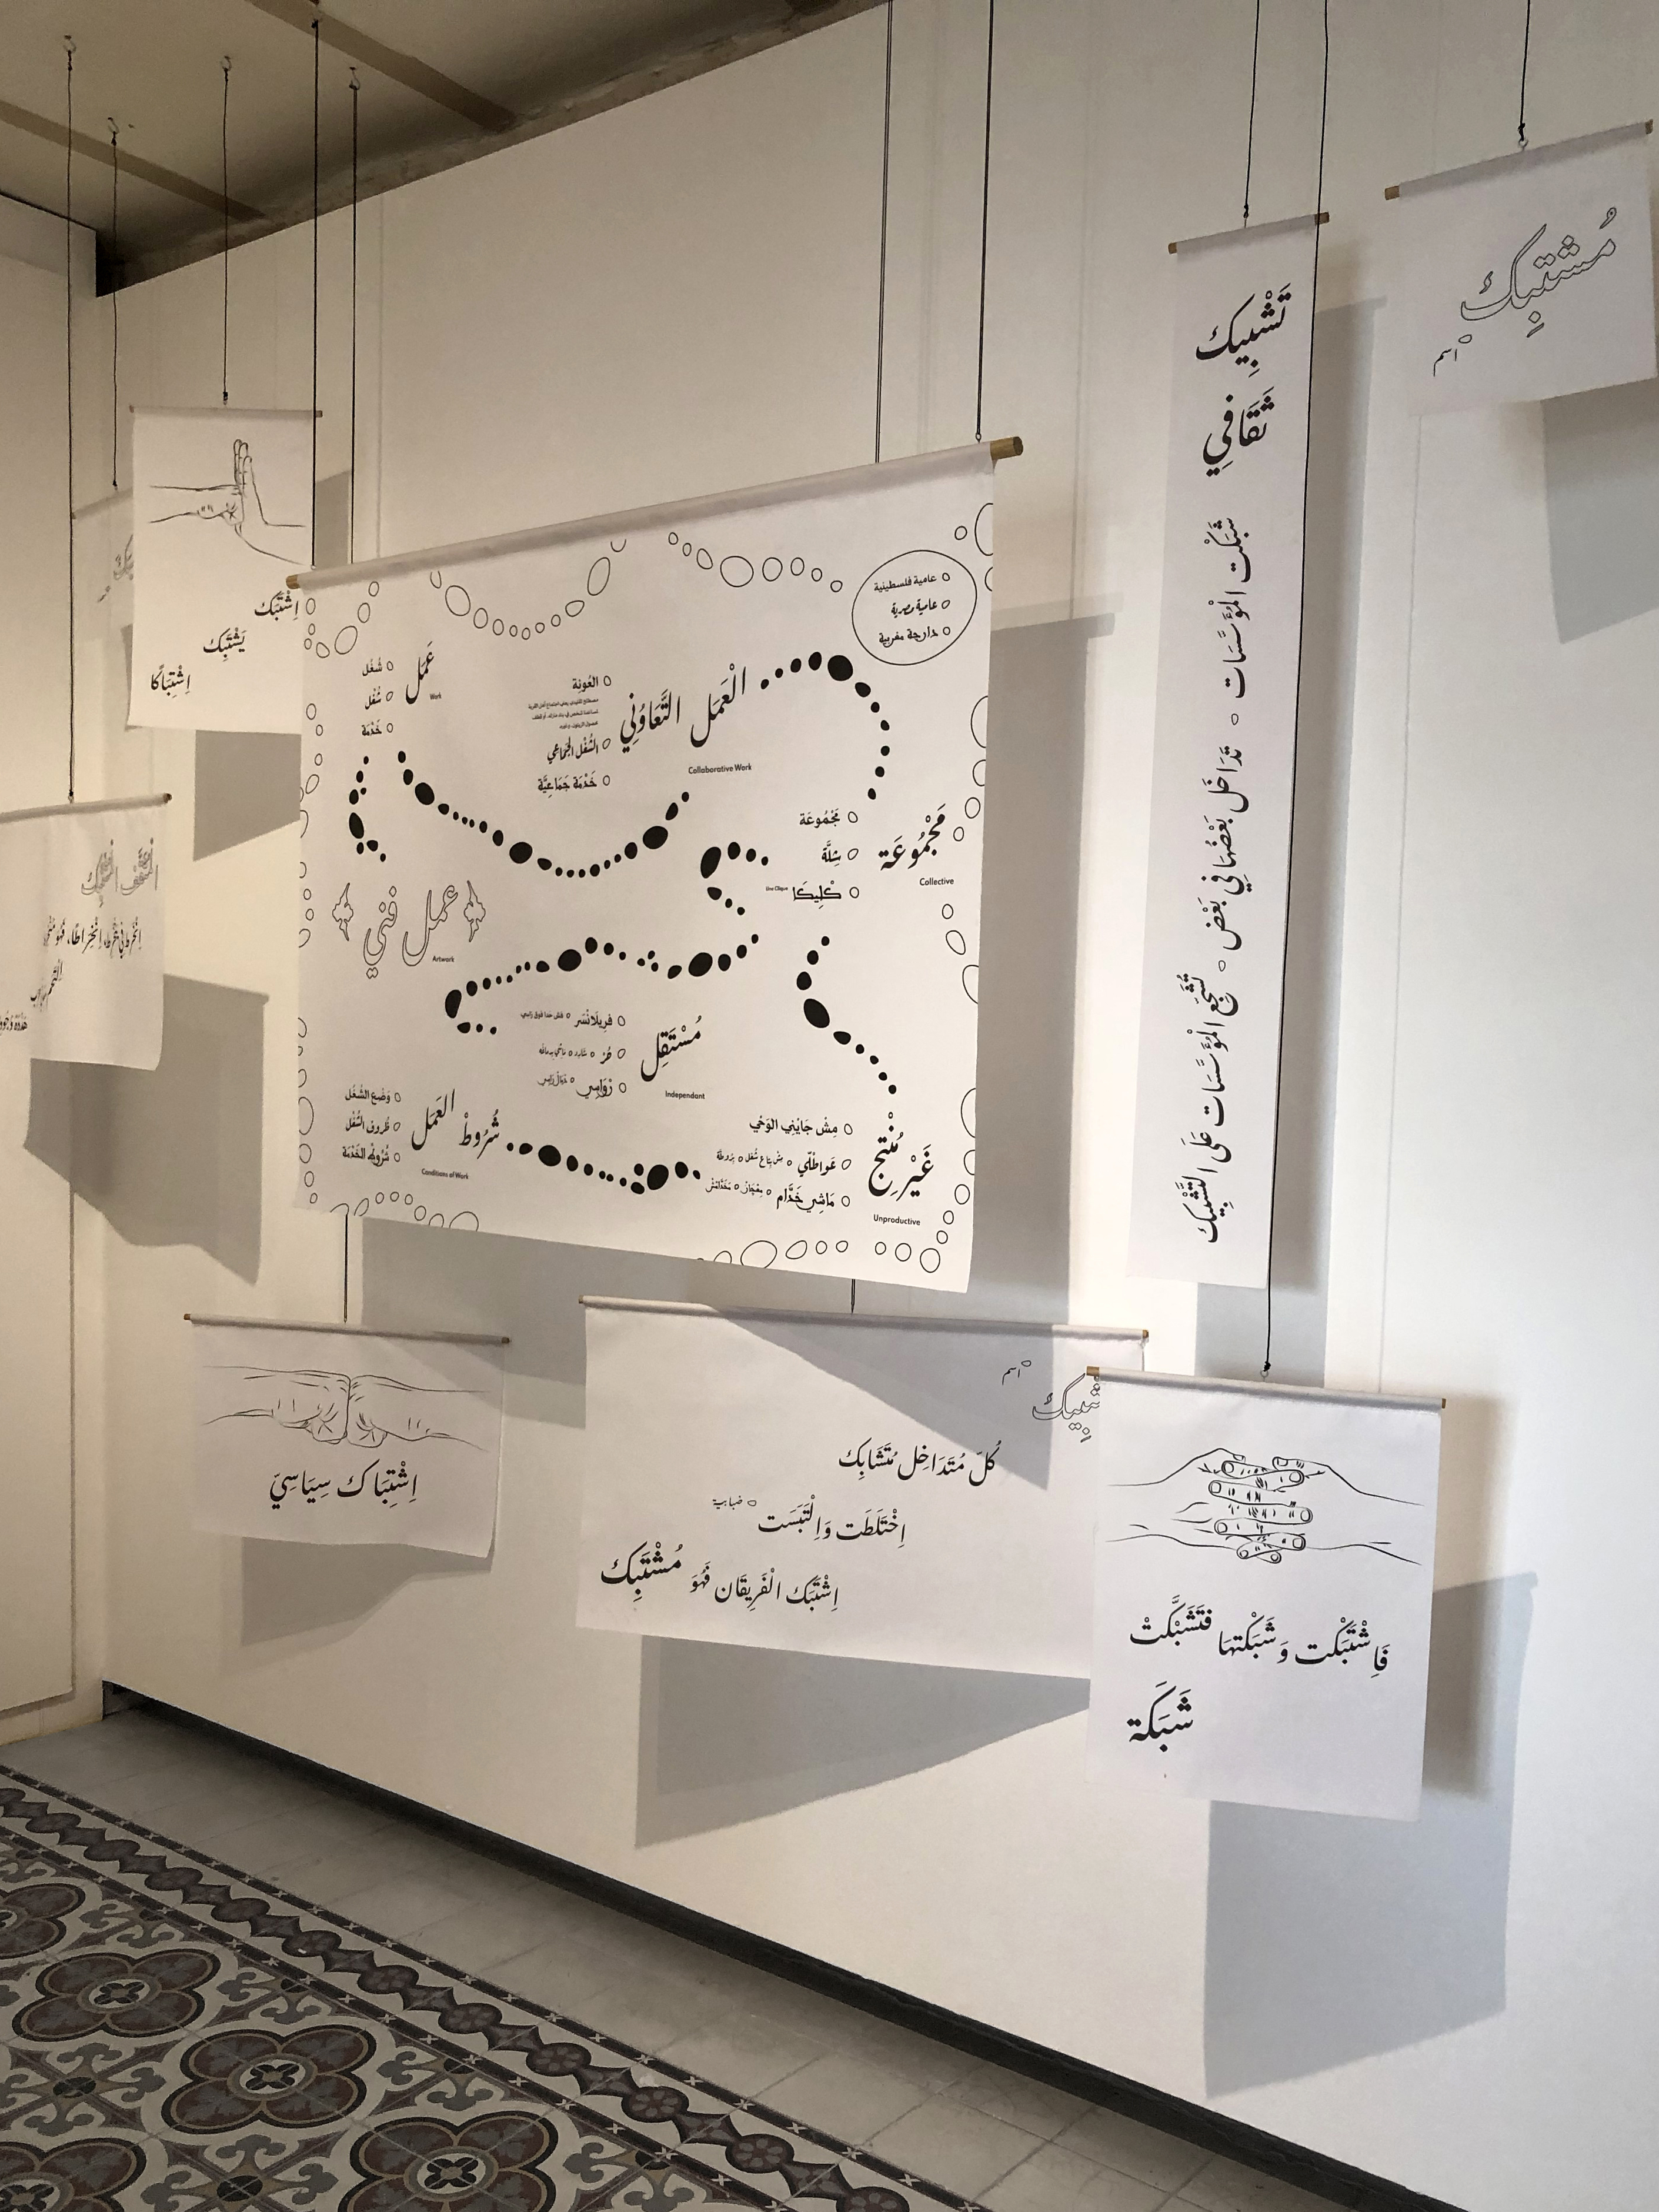 مُشْتَبِك
اسم
تَشْبِيك
ثَقَافِي
شَبَكَت المُؤَسَّسَات ○ تَدَاخَل بَعْضُهَا فِي بَعْض ○ تُشَجِّع المُؤَسَّسَات عَلَى التَّشْبِيك
اِشْتَبَكَ
يَشْتَبِك
اِشْتِبَاكًا
عامية فلسطينية
عامية مصرية
دارجة مغربية
عَمَل
Work
شُغْل
شُغْل
خَدْمَة
العَمَل التَّعَاوُنِي
Collaborative Work
العُونِة
الشُّغْل الجَمَاعِي
خَدْمَة جَمَاعِيَّة
مَجْمُوعَة
Collective
مَجْمُوعَة
شِلَّة
كْلِيكَا
Une Clique
عمل فني
Artwork
مُسْتَقِل
Independant
فريلانْسَر
حُرّ
رْوَاسِي
شُرُوطْ العَمَل
Conditions of Work
وَضْع الشُّغْل
ظُروف الشُّغْل
شْرُوط الخَدْمَة
غَيْر مُنْتِج
Unproductive
مِش جَايْنِي الوَحْي
عَوَاطْلِي
مَاشِي خَدَّام
اِشْتِبَاك سِيَاسِيّ
اسم
كُلّ مُتَدَاخِل مُتَشَابِك
اِخْتَلَطَت وَالْتَبَسَت ○ ضبابية
اِشْتَبَك الْفَرِيقَان فَهُوَ مُشْتَبِك
فَاِشْتَبَكْت وَشَبَكْتهَا فَتَشَبَّكَتْ
شَبَكَة